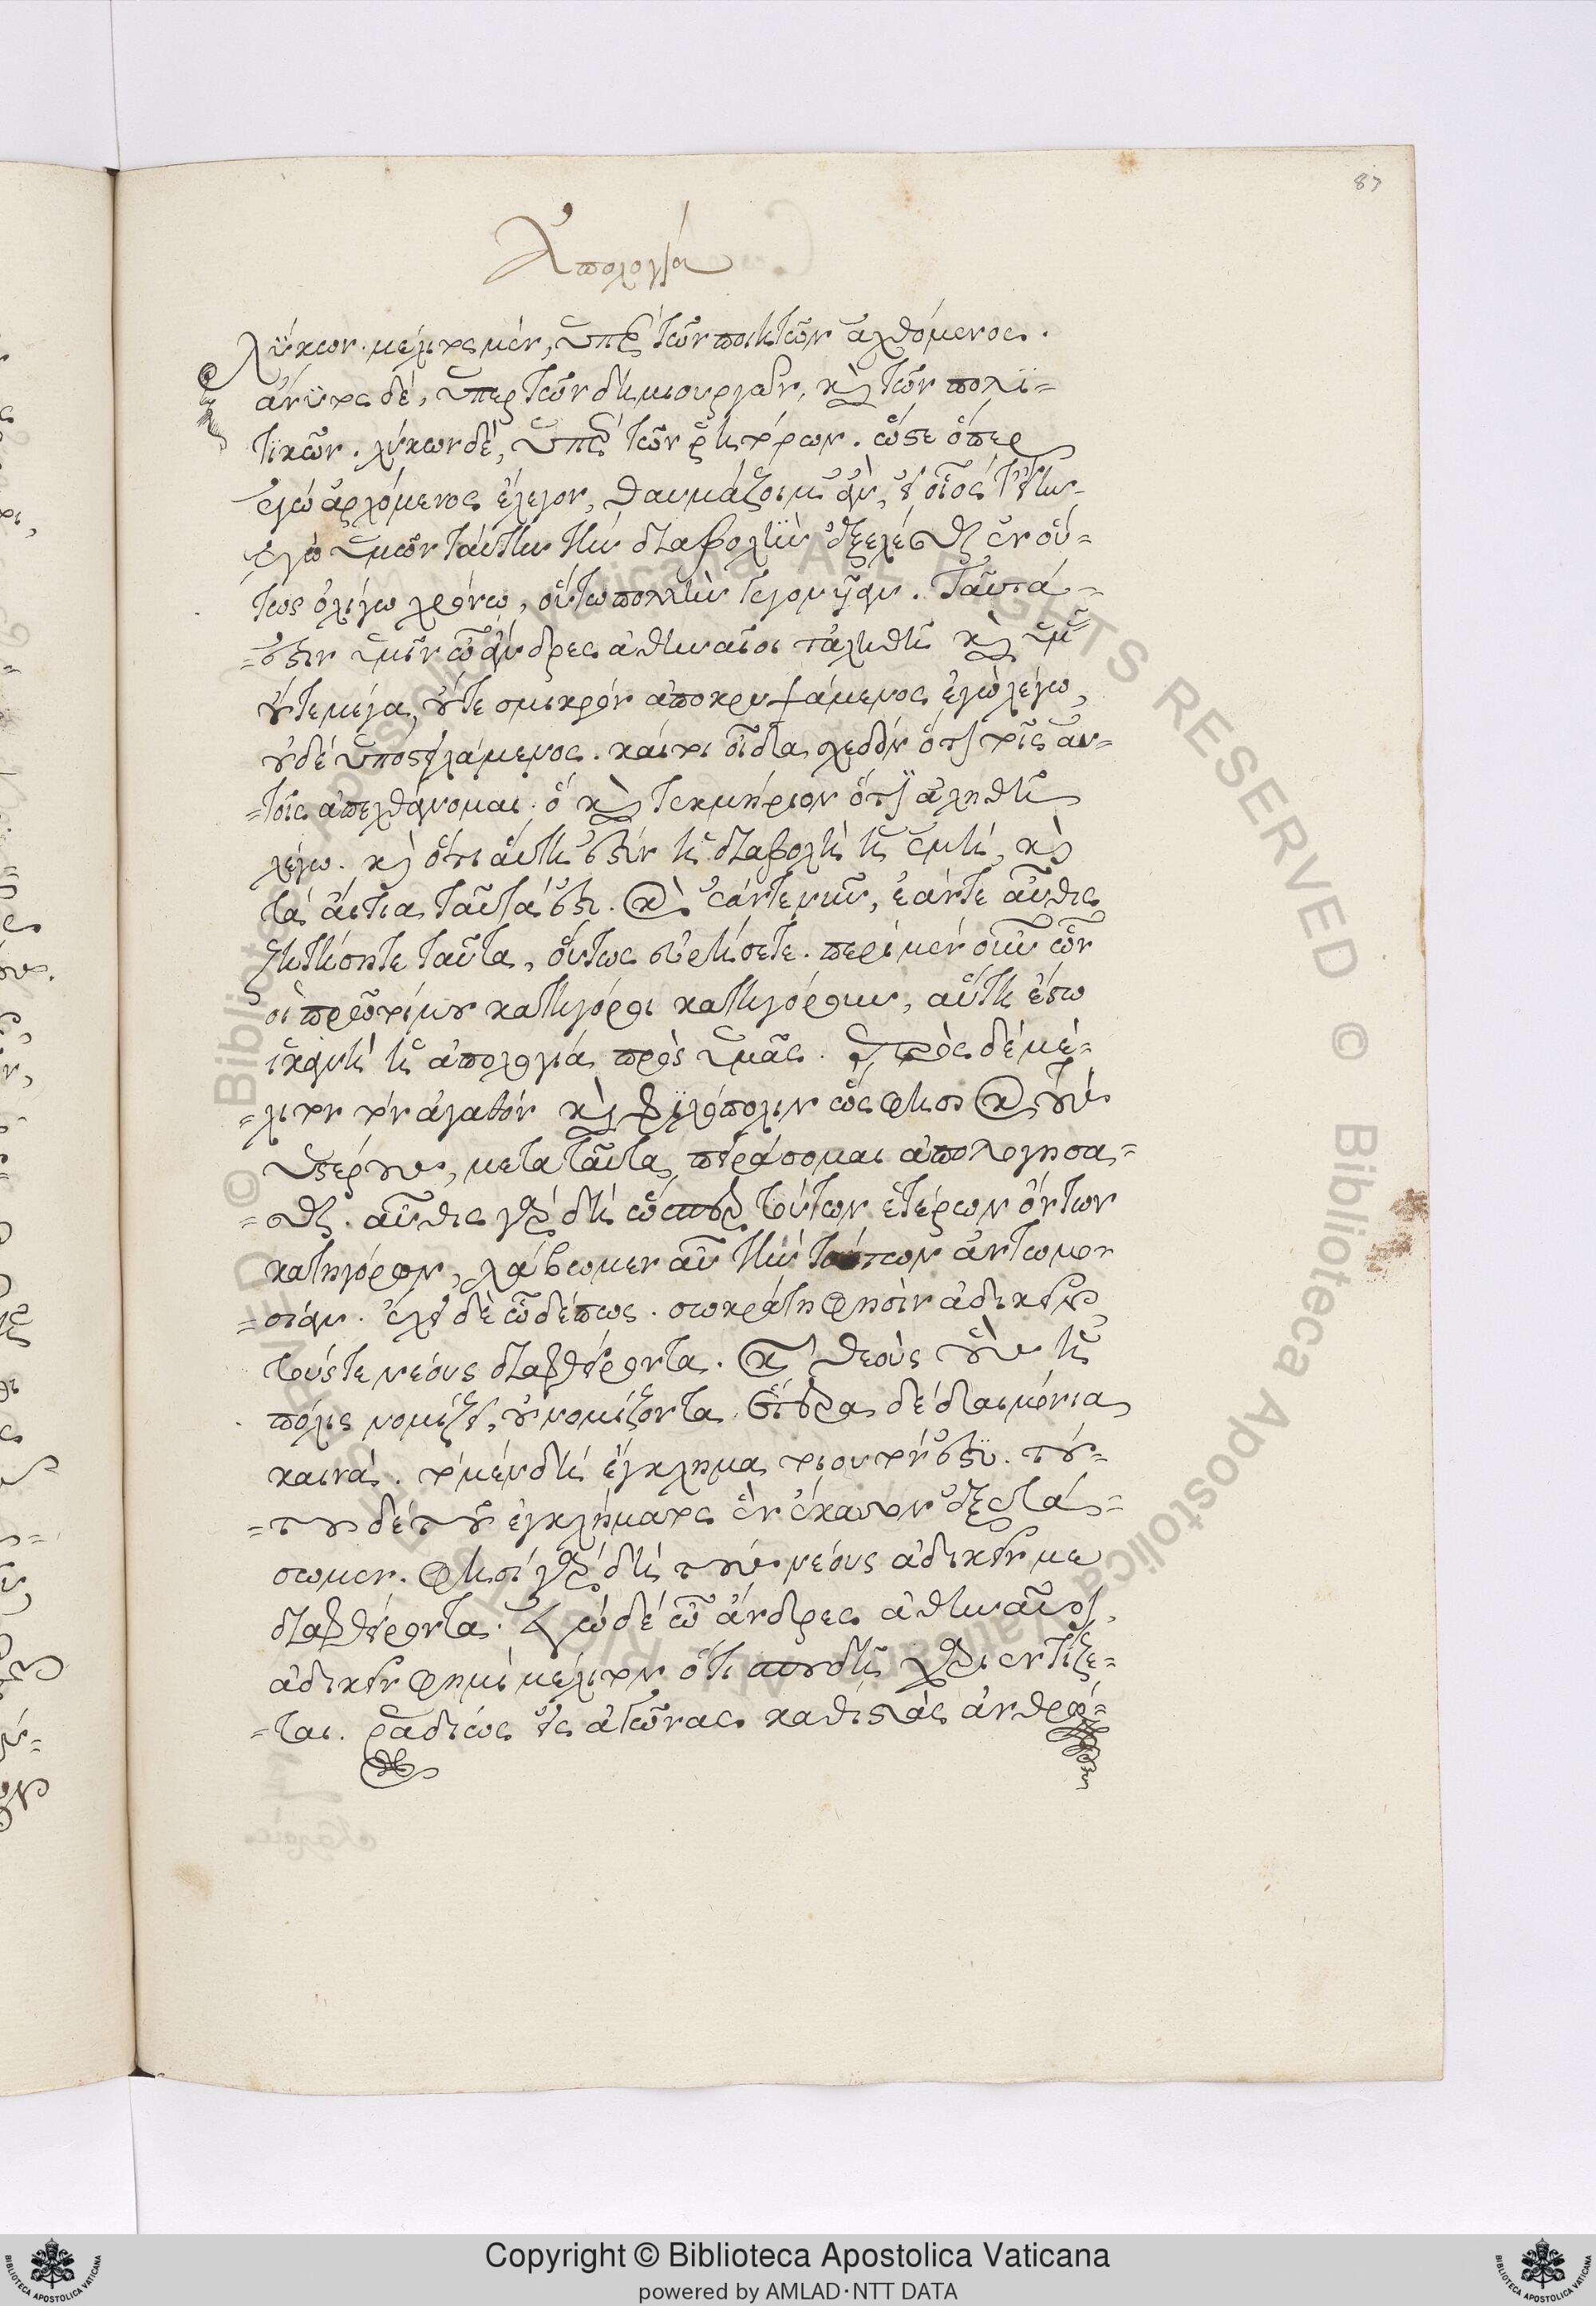 87
Ἀπολογία
λύκων. μέλιτος μέν, ὑπὲρ τῶν ποιητῶν ἀχθόμενος.
ἄνυτος δέ, ὑπὲρ τῶν δημιουργῶν, καὶ τῶν πολι=
τικῶν. λύκων δέ, ὑπὲρ τῶν ῥητόρων. ὥστε ὅπερ
ἐγὼ ἀρχόμενος ἔλεγον, θαυμάζοιμ' ἄν, εἰ οἷός τ' εἴην
ἐγὼ ὑμῶν ταύτην τὴν διαβολὴν ἐξελέσθαι ἐν οὕ=
τως ὀλίγω χρόνω, οὕτω πολλὴν γεγονυῖαν. ταῦτά
=ἐστιν ὑμῖν ὦ ἄνδρες ἀθηναῖοι τἀληθῆ καὶ ὑμᾶς
οὔτε μέγα, οὔτε σμικρὸν ἀποκρυψάμενος ἐγὼ λέγω,
οὐδέ ὑποστειλάμενος. καίτοι οἶδα σχεδὸν ὅτι τοῖς αὐ=
=τοῖς ἀπεχθάνομαι. ὃ καὶ τεκμήριον ὅτι ἀληθῆ
λέγω. καὶ ὅτι αὕτη ἐστὶν ἡ διαβολὴ ἡ ἐμή, καὶ
τὰ αἴτια ταῦτά ἐστι. καὶ ἐάν τε νῦν, ἐάν τε αὖθις
ζητήσητε ταῦτα, οὕτως εὑρήσετε. περὶ μὲν οὖν ὧν
οἱ πρῶτοί μου κατήγοροι κατηγόρουν, αὕτη ἔστω
ἱκανὴ ἡ ἀπολογία πρὸς ὑμᾶς. πρὸς δὲ μέ=
=λιτον τὸν ἀγαθόν καὶ φιλόπολιν ὥς φησι καὶ τοὺς
ὑστέρους, μετὰ ταῦτα πειράσομαι ἀπολογήσα=
=σθαι. αὖθις γὰρ δὴ ὥσπερ τούτων ἑτέρων ὄντων
κατηγόρων, λάβωμεν αὖ τὴν τούτων ἀντωμο
=σίαν. ἔχει δὲ ὧδέ πως. σωκράτη φησὶν ἀδικεῖν
τούς τε νέους διαφθείροντα. καὶ θεοὺς οὓς ἡ
πόλις νομίζει, οὐ νομίζοντα. ἕτερα δὲ δαιμόνια
καινά. τὸ μὲν δὴ ἔγκλημα τοιοῦτόν ἐστι. τού=
=του δὲ τοῦ ἐγκλήματος ἓν ἕκαστον ἐξετά=
σωμεν. φησὶ γὰρ δὴ τοὺς νέους ἀδικεῖν με
διαφθείροντα. ἐγὼ δέ ὦ ἄνδρες ἀθηναῖοι,
ἀδικεῖν φημὶ μέλιτον ὅτι σπουδῇ χαριεντίζε=
=ται. ῥαδίως εἰς ἀγῶνας καθιστὰς ἀνθρώ=